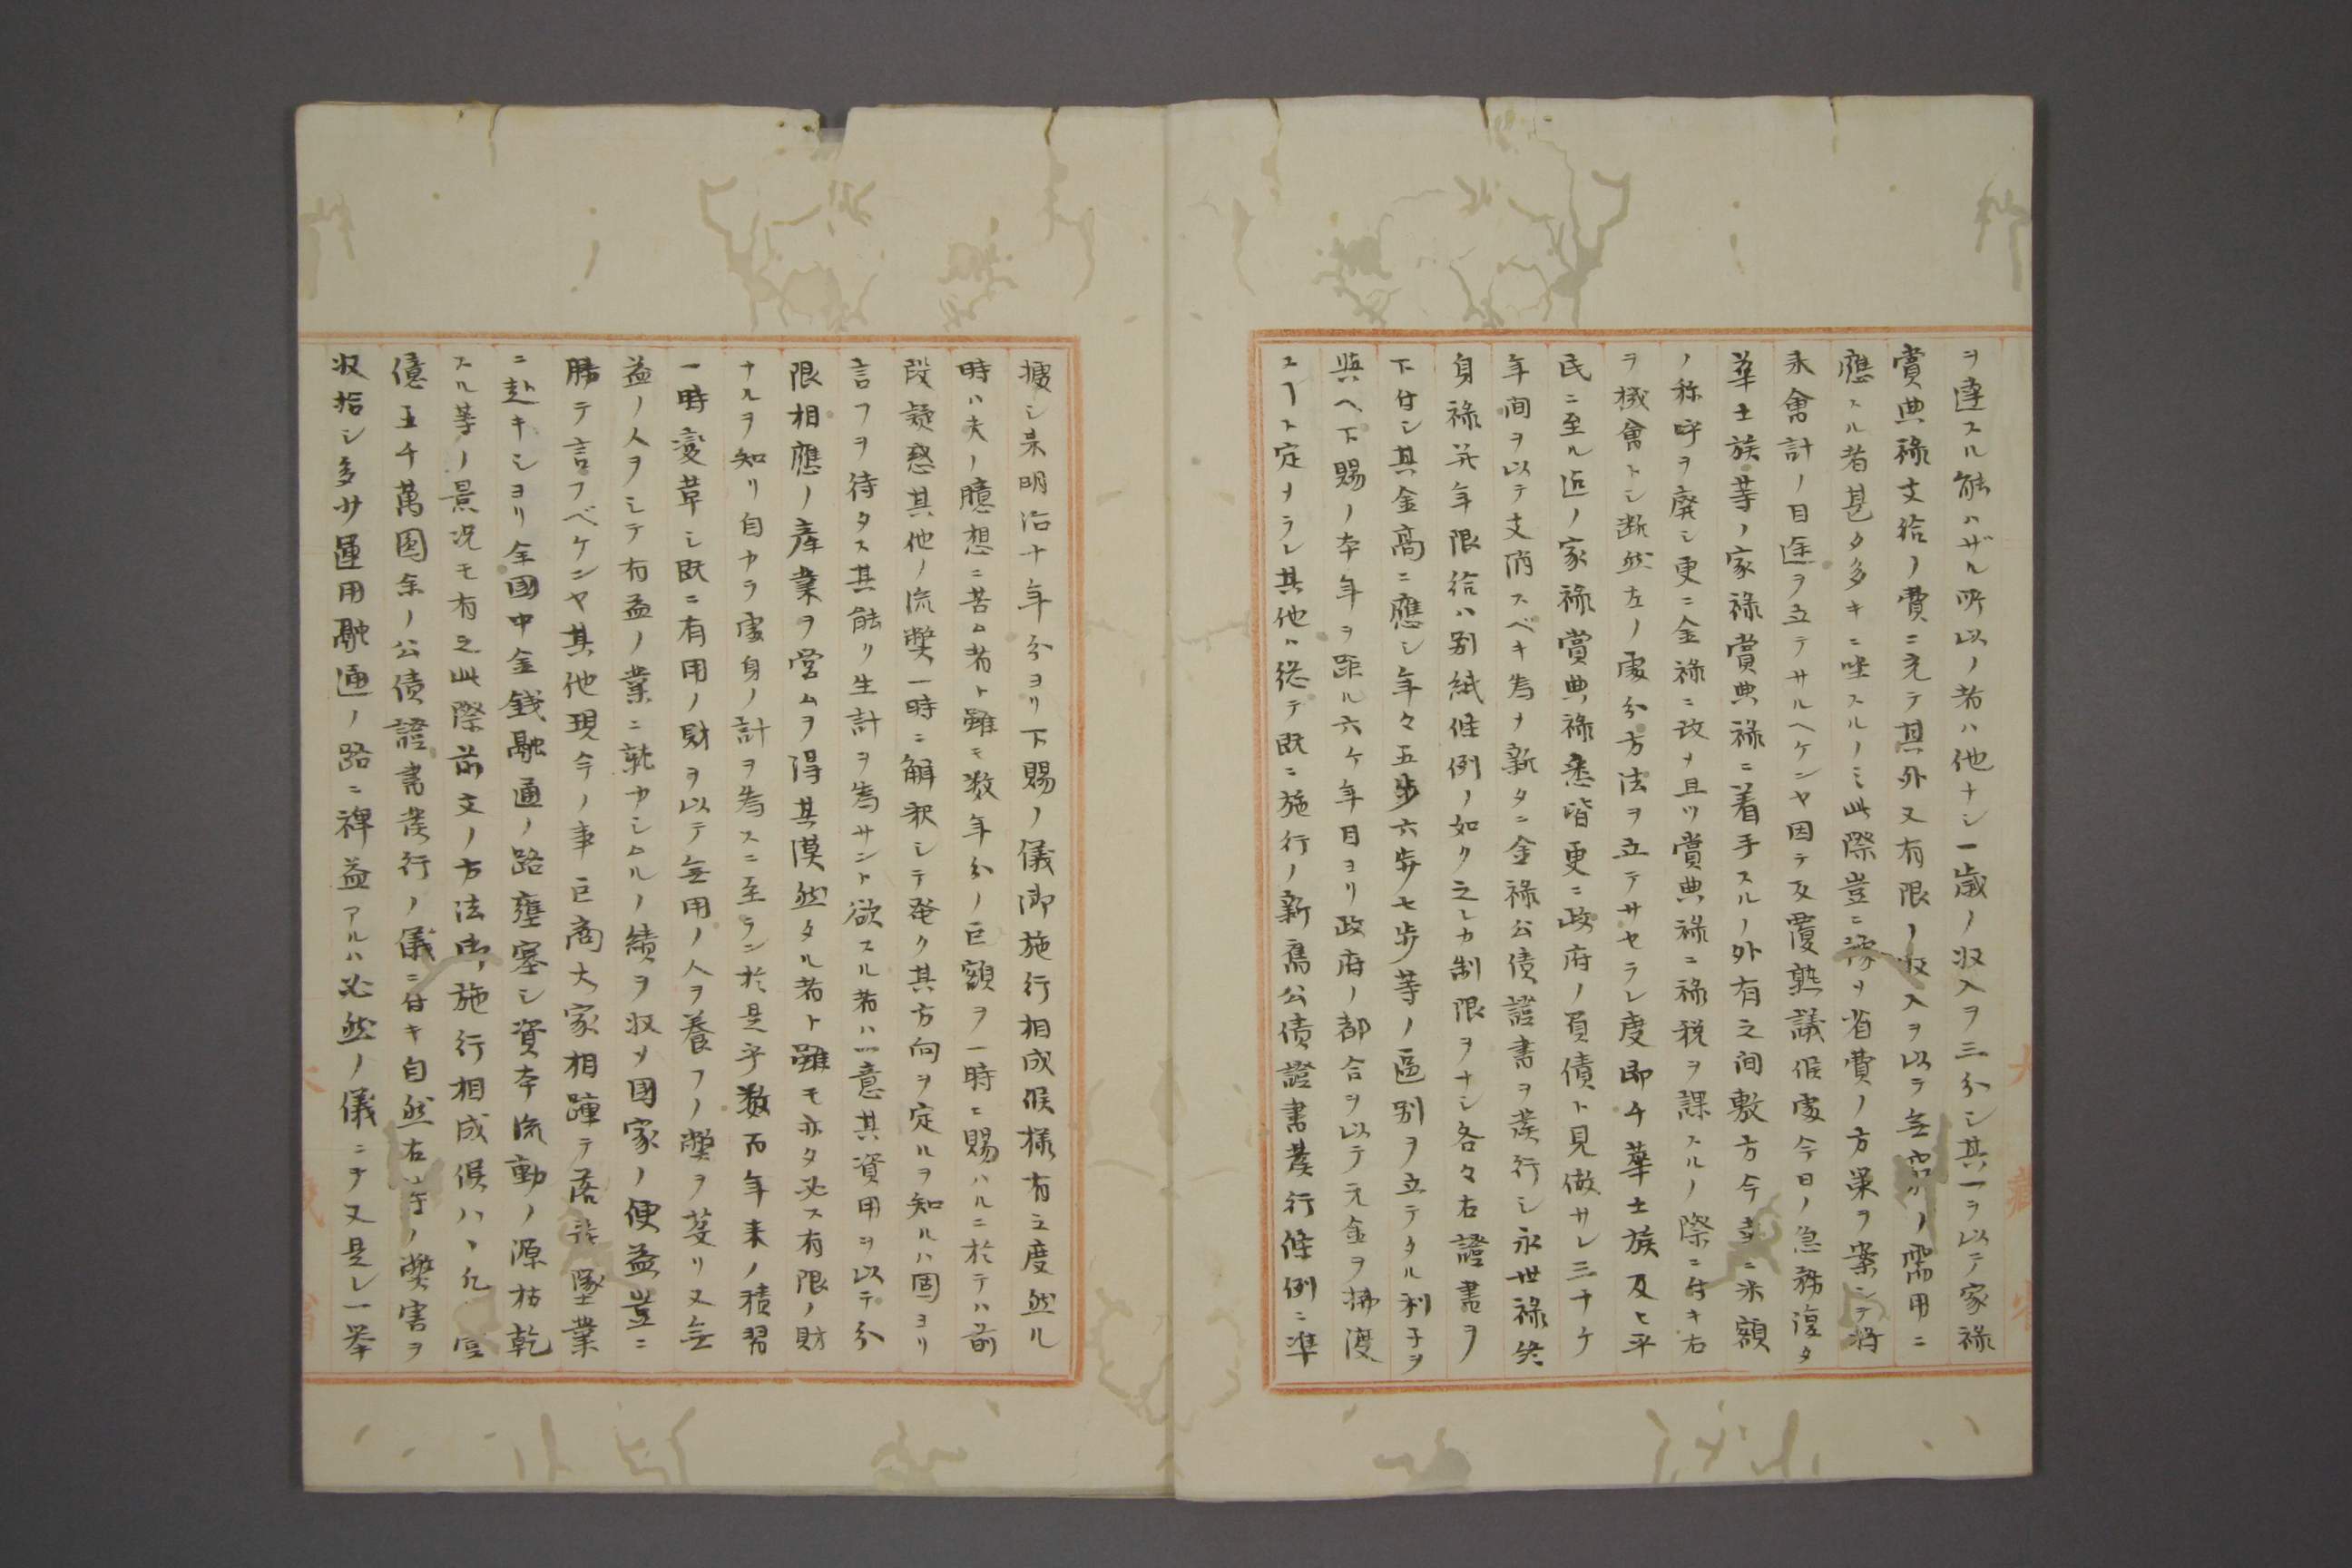 ヲ達スル能ハザル所以ノ者ハ他ナシ一歳ノ収入ヲ三分シ其一ヲ以テ家禄
賞典禄支給ノ費ニ充テ其外又有限ノ収入ヲ以テ無窮ノ需用ニ
應スル者甚タ多キニ坐スルノミ此際豈ニ務メ省費ノ方策ヲ案シテ将
来會計ノ目途ヲ立テサルヘケンヤ因テ反覆熟議候處今日ノ急務復タ
華士族等ノ家禄賞典禄ニ着手スルノ外有之間敷方今幸ニ米額
ノ称呼ヲ廃シ更ニ金禄ニ改メ且ツ賞典禄ニ禄税ヲ課スルノ際ニ付キ右
ヲ機會トシ断然左ノ處分方法ヲ立テサセラレ度即チ華士族及ヒ平
民ニ至ル迠ノ家禄賞典禄悉皆更ニ政府ノ負債ト見做サレ三十ケ
年间ヲ以テ支消スベキ為メ新タニ金禄公債證書ヲ発行シ永世禄終
身禄并年限給ハ別紙條例ノ如ク之レカ制限ヲナシ各々右證書ヲ
下付シ其金高ニ應シ年々五歩六歩七歩等ノ區別ヲ立テタル利子ヲ
與ヘ下賜ノ本年ヲ距ル六ケ年目ヨリ政府ノ都合ヲ以テ元金ヲ拂渡
スヿト定メラレ其他ハ総テ既ニ施行ノ新舊公債證書発行條例ニ準
據シ来明治十年分ヨリ下賜ノ儀御施行相成候様有之度然ル
時ハ夫ノ臆想ニ苦ム者ト雖モ数年分ノ巨額ヲ一時ニ賜ハルニ於テハ前
段疑惑其他ノ流弊一時ニ解釈シテ発ク其方向ヲ定ルヲ知ルハ固ヨリ
言フヲ待タス其能リ生計ヲ為サント欲スル者ハ一意其資用ヲ以テ分
限相應ノ産業ヲ営ムヲ得其漠然タル者ト雖モ亦タ必ス有限ノ財
ナルヲ知リ自カラ處身ノ計ヲ為スニ至ラン於是乎数百年来ノ積習
一時変革シ既ニ有用ノ財ヲ以テ無用ノ人ヲ養フノ弊ヲ芟リ又無
益ノ人ヲシテ有益ノ業ニ就カシムルノ績ヲ収メ國家ノ便益豈ニ
勝テ言フベケンヤ其他現今ノ事巨商大家相踵テ落魄墜業
ニ赴キシヨリ全國中金銭融通ノ路壅塞シ資本流動ノ源枯乾
スル等ノ景况モ有之此際前文ノ方法御施行相成候ハヽ凡壹
億五千萬圓余ノ公債證書発行ノ儀ニ付キ自然右等ノ弊害ヲ
収拾シ多少運用融通ノ路ニ裨益アルハ必然ノ儀ニテ又是レ一挙